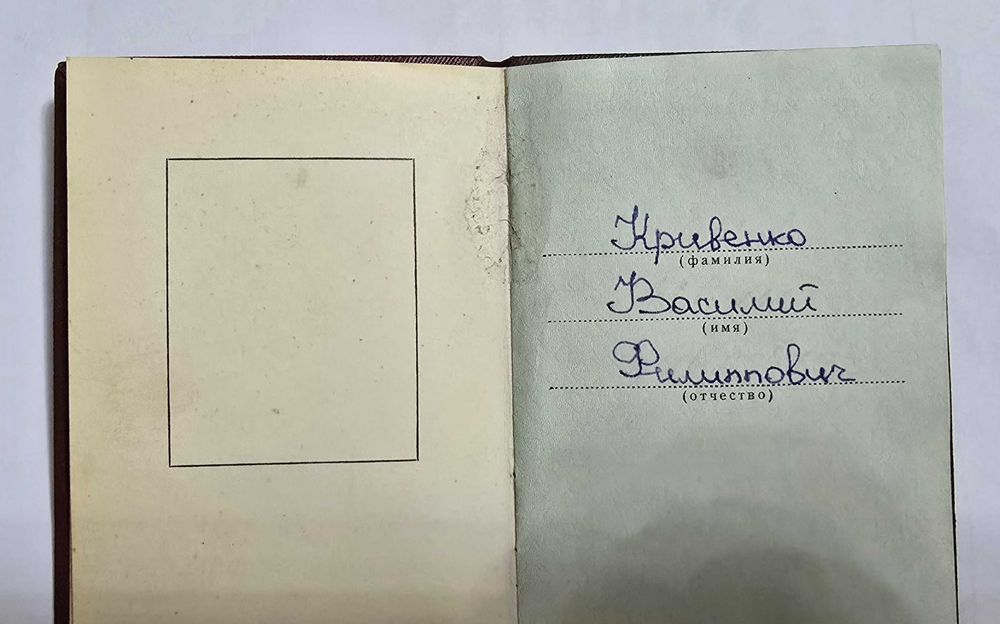 Кривенко
(фамилия)
Василий
(имя)
Филиппович
(отчество)